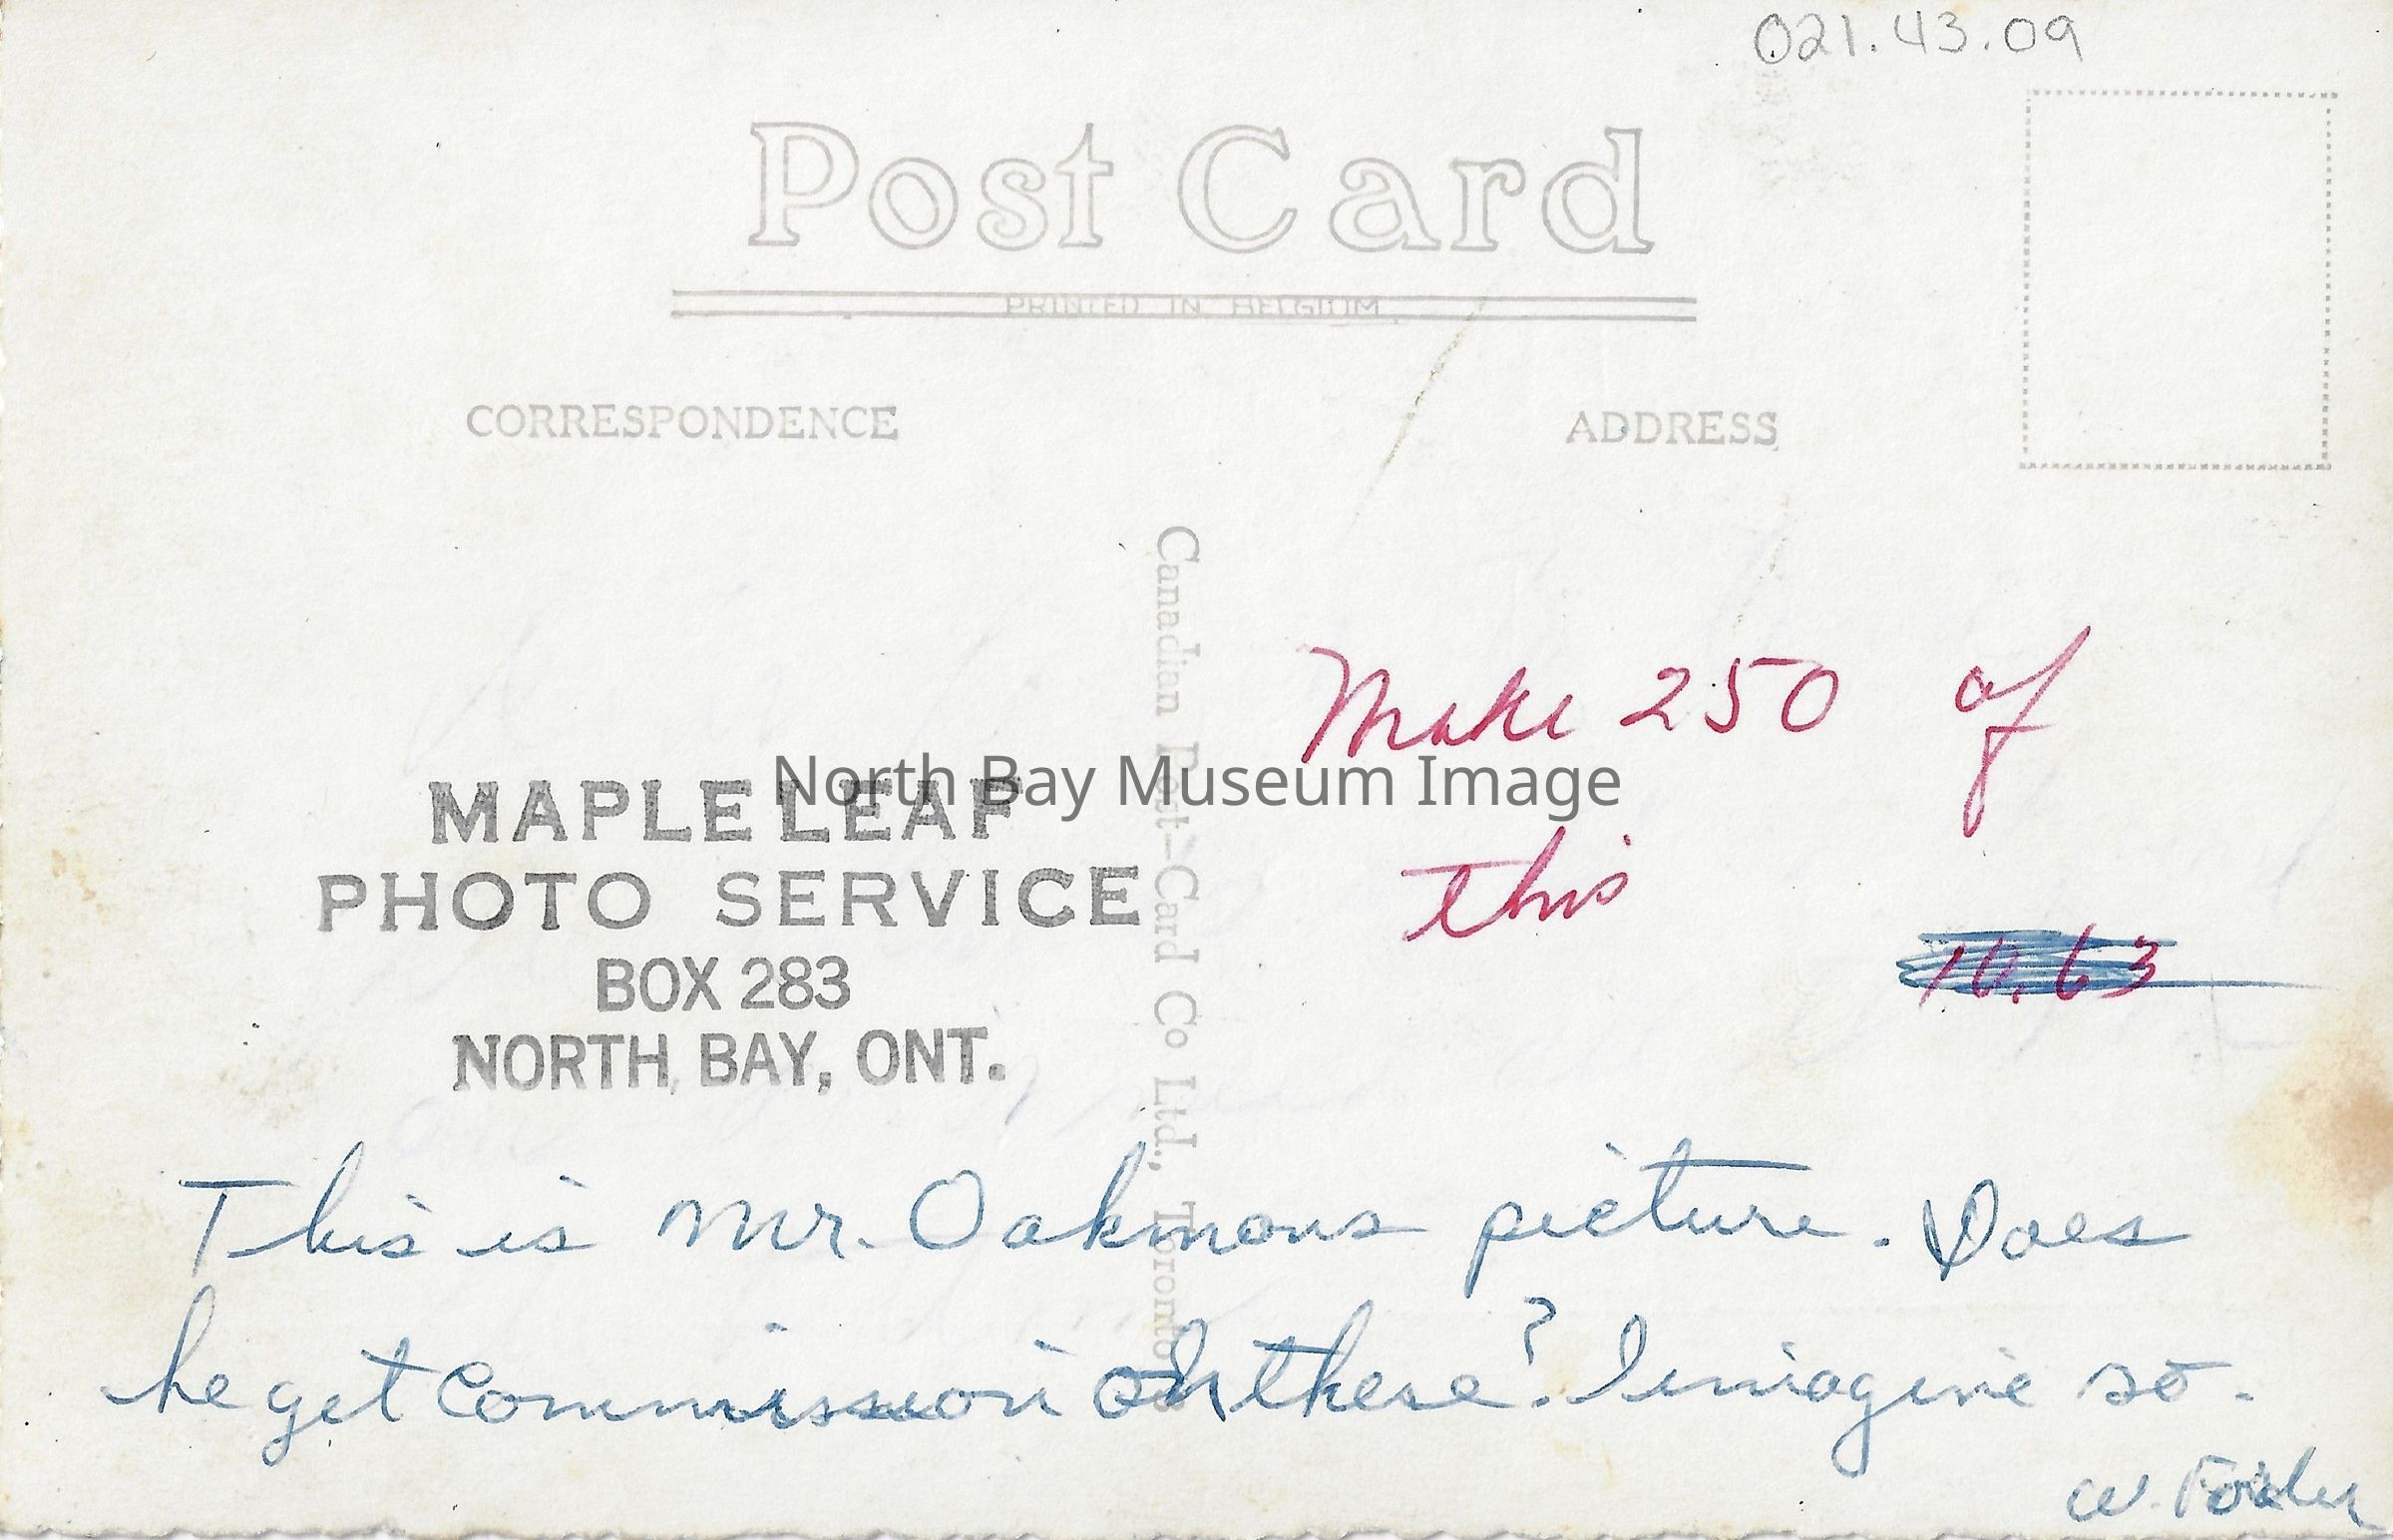 021.43.09
Post Card
PRINTED IN BELGIUM
CORRESPONDENCE
ADDRESS
Canadian Post-Card Co Ltd., Toronto
Make 250 of
this
10.63
North Bay Museum Image
MAPLE LEAF
PHOTO SERVICE
BOX 283
NORTH BAY, ONT.
This is Mr. Oakmons picture. Does
he get Commission on these? I imagine so.
W.